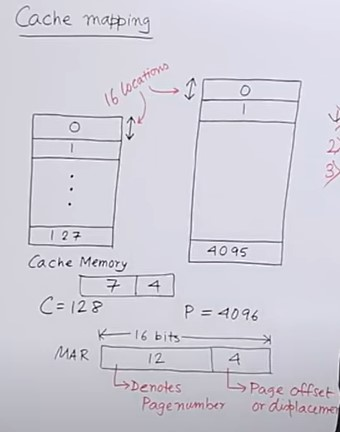 Cache mapping
16 locations
0
1
127
Cache Memory
7 4
C=128
0
1
4095
P = 4096
16 bits
MAR 12 4
Denotes
Page number
Page offset
or displacemen
2)
3)